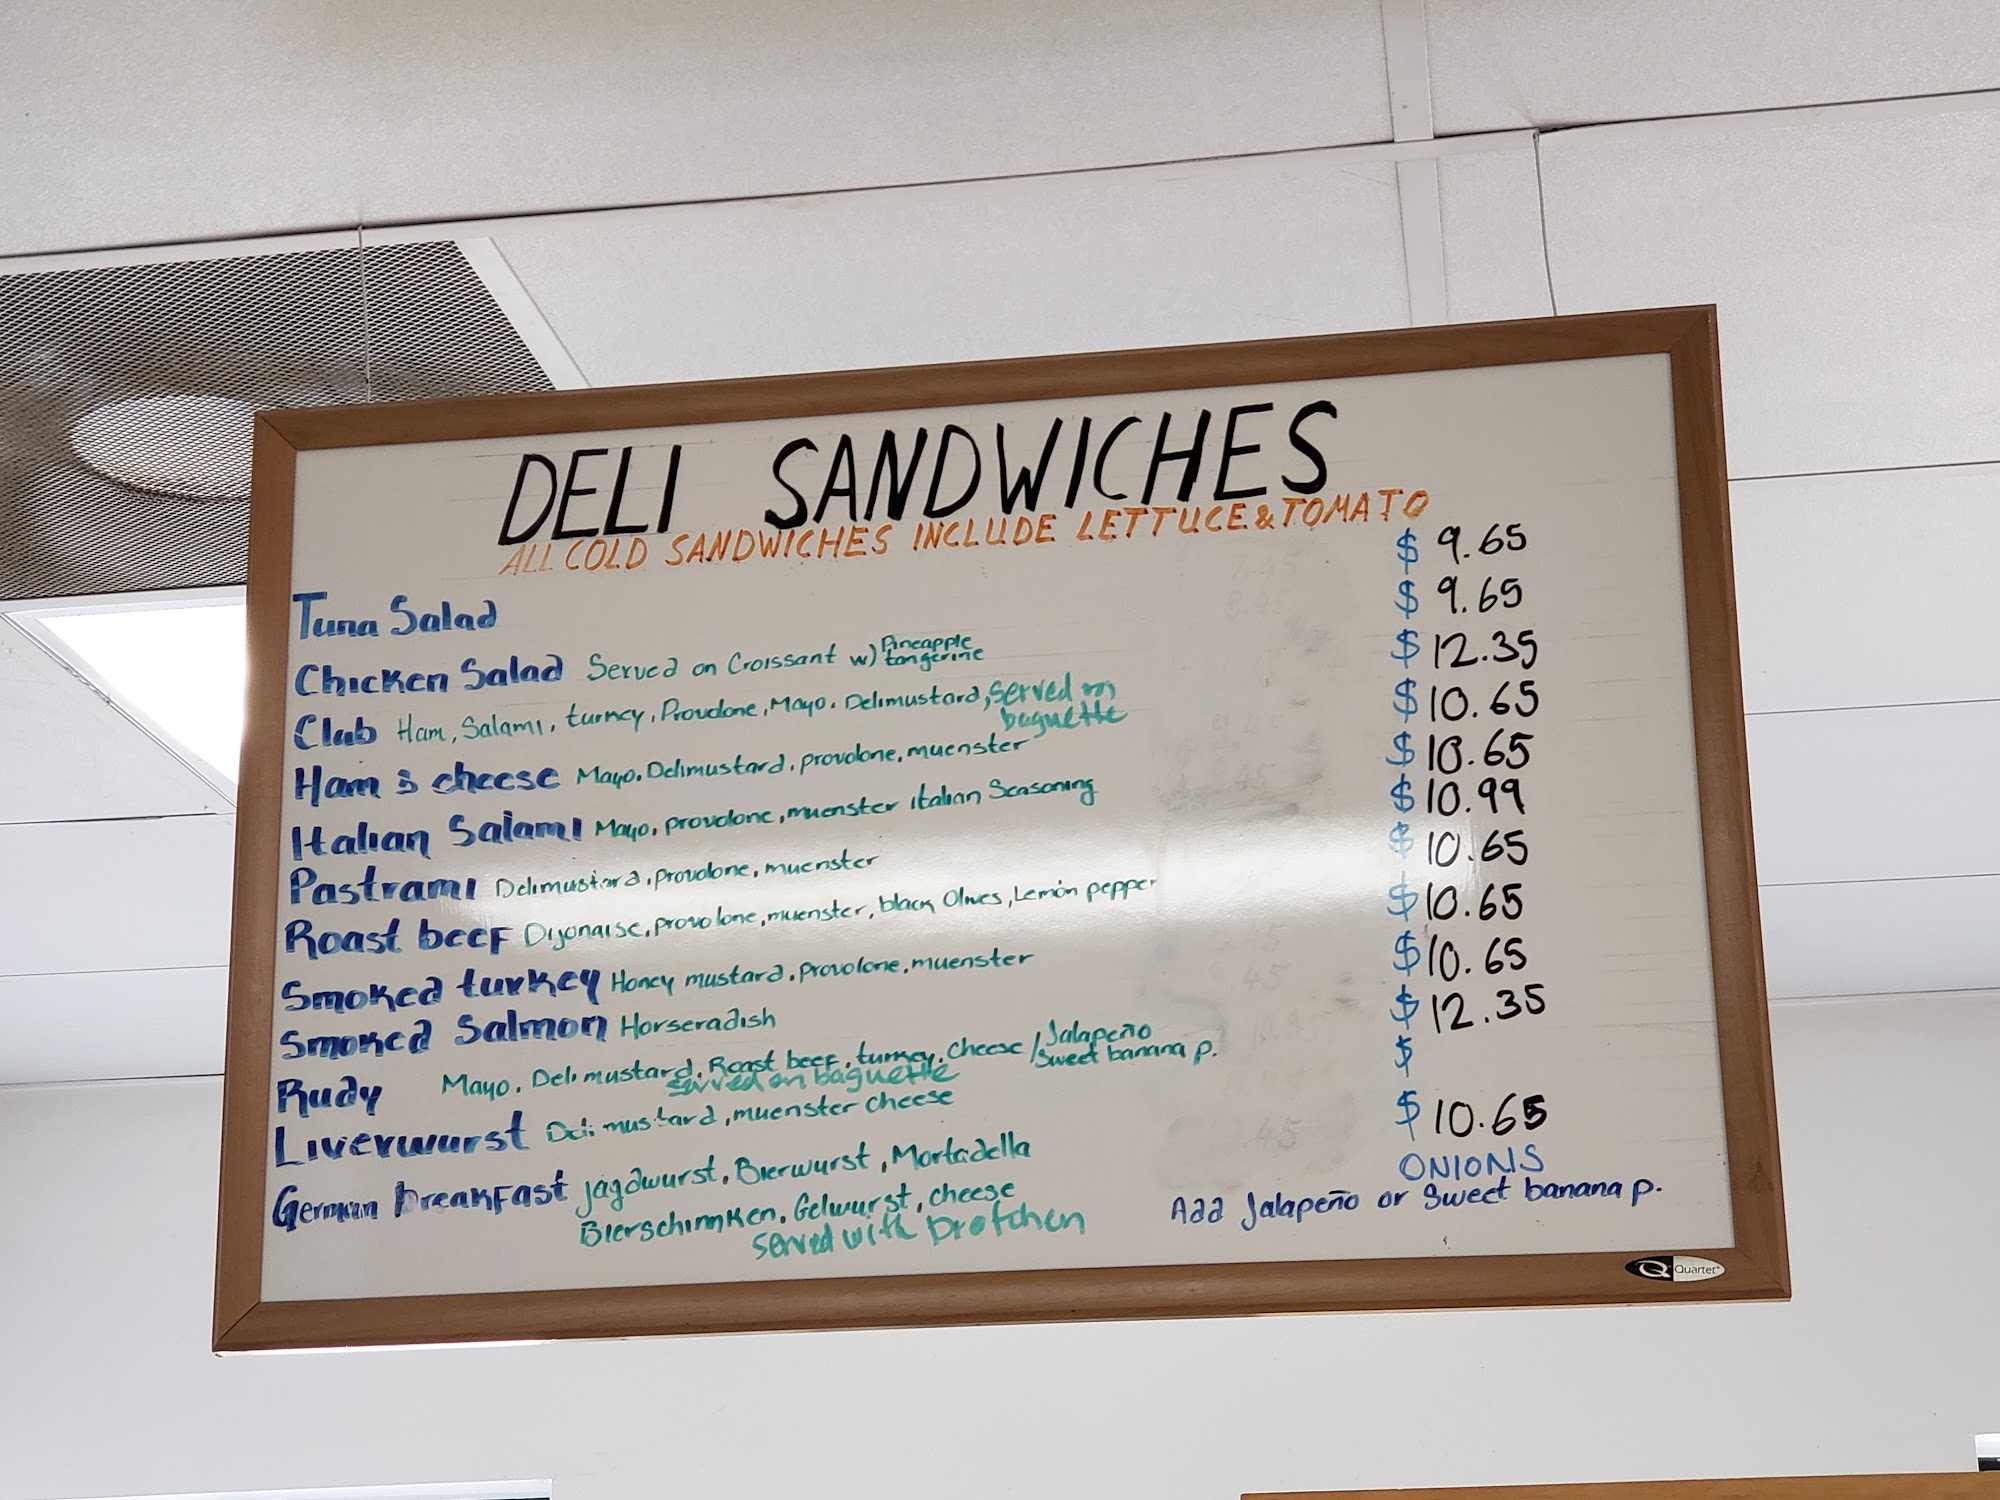 DELI SANDWICHES
ALL COLD SANDWICHES INCLUDE LETTUCE & TOMATO
Tuna Salad $ 9.65
Chicken Salad Served on Croissant w) Pineapple tangerine $ 9.65
Club Ham, Salami, turkey, Provolone, Mayo, Delimustard, served on baguette $ 12.35
Ham & cheese Mayo, Delimustard, provolone, muenster $ 10.65
Italian Salami Mayo, provolone, muenster Italian Seasoning $ 10.65
Pastrami Delimustard, provolone, muenster $ 10.99
Roast beef Dijonaise, provolone, muenster, black Olives, Lemon pepper $ 10.65
Smoked turkey Honey mustard, provolone, muenster $ 10.65
Smoked Salmon Horseradish $ 10.65
Rudy Mayo, Deli mustard, Roast beef, turkey, Cheese / Jalapeño Sweet banana p. $ 12.35
served on baguette
Liverwurst Deli mustard, muenster cheese $
German breakfast Jagdwurst, Bierwurst, Mortadella $ 10.65
Bierschinnken, Gelwurst, cheese
served with Brotchen
ONIONS
Add Jalapeño or Sweet banana p.
Quartet